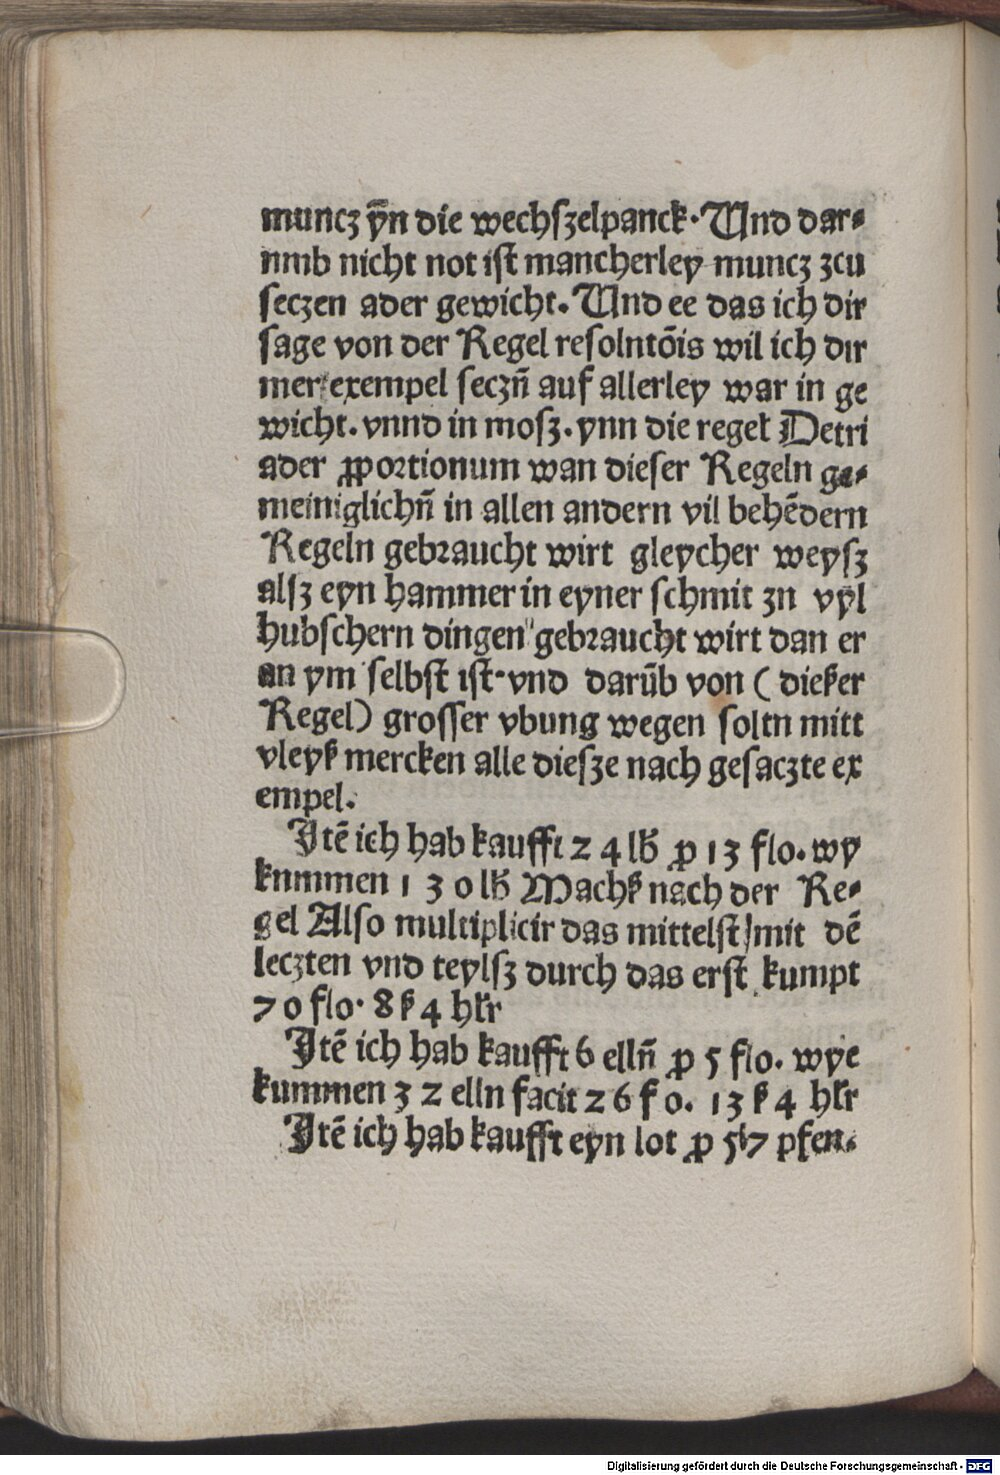 muncz ȳn die wechſzelpanck. Und dar⸗
nmb nicht not iſt mancherley muncz zcu
ſeczen ader gewicht. Und ee das ich dir
ſage von der Regel reſolntõis wil ich dir
mer exempel ſeczn̄ auf allerley war in ge
wicht. vnnd in moſz. ynn die regel Detri
ader ꝓportionum wan dieſer Regeln ge⸗
meiniglichn̄ in allen andern vil behēdern
Regeln gebraucht wirt gleycher weyſz
alſz eyn hammer in eyner ſchmit zn vyl
hubſchern dingen gebraucht wirt dan er
an ym ſelbſt iſt·vnd darūb von ( dieſzer
Regel) groſſer vbung wegen ſoltn mitt
vleyſz mercken alle dieſze nach geſaczte ex
empel.
Itē ich hab kaufft 24 lb̄ ꝓ 13 flo. wy
knmmen 1 3 0 lb̄ Machſz nach der Re⸗
gel Alſo multiplicir das mittelſt mit dē
leczten vnd teylſz durch das erſt kumpt
70 flo. 8 ß 4 hlr
Itē ich hab kaufft 6 elln̄ ꝓ 5 flo. wye
kummen 32 elln facit 26 f o. 13 ß 4 hlr
Itē ich hab kaufft eyn lot ꝓ 57 pfen⸗
Digitalisierung gefördert durch die Deutsche Forschungsgemeinschaft - DFG